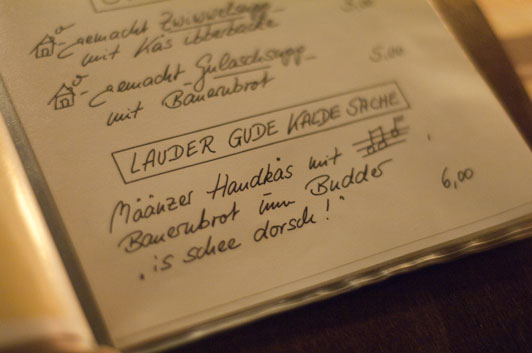 gemacht Zwiwwelsupp
mit Käs ibberbacke
gemacht Gulaschsupp
5.00
mit Bauernbrot
LAUDER GUDE KALDE SACHE
Määnzer Handkäs mit
Bauernbrot unn Budder
6,00
"is schee dorsch!"